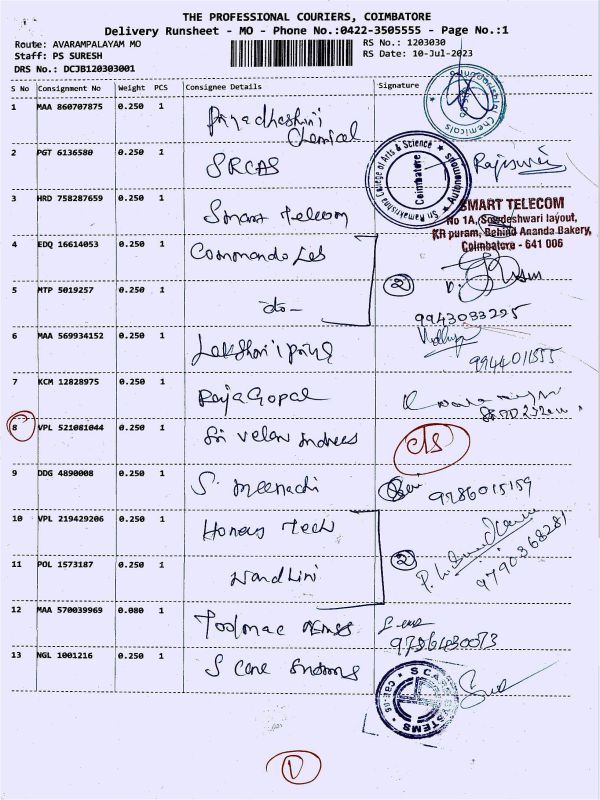 THE PROFESSIONAL COURIERS, COIMBATORE
Delivery Runsheet - MO - Phone No.:0422-3505555 - Page No.:1
Route: AVARAMPALAYAM MO
RS No.: 1203030
Staff: PS SURESH
RS Date: 10-Jul-2023
DRS No.: DCJB120303001
S No Consignment No Weight PCS Consignee Details Signature
1 MAA 860707875 0.250 1 Priyadharshini Chemical
2 PGT 6136580 0.250 1 SRCAS
Sri Ramakrishna College of Arts & Science
Coimbatore
Autonomous
3 HRD 758287659 0.250 1 Smart Telecom
SMART TELECOM
No 1A, Sowdeshwari layout,
KR puram, Behind Ananda Bakery,
Coimbatore - 641 006
4 EDQ 16614053 0.250 1 Commando Les
2
5 MTP 5019257 0.250 1 -do-
9943093225
6 MAA 569934152 0.250 1
9944011555
7 KCM 12828975 0.250 1 RajaGopal
8 VPL 521081044 0.250 1 Sri Velan
c/s
9 DDG 4890008 0.250 1 S. Meenachi
9786015159
10 VPL 219429206 0.250 1 Honeus Tech
2
9790368281
11 POL 1573187 0.250 1 Nandhini
12 MAA 570039969 0.080 1 Toolmac
13 NGL 1001216 0.250 1 S Cane
SYSTEMS
CBE-06
1